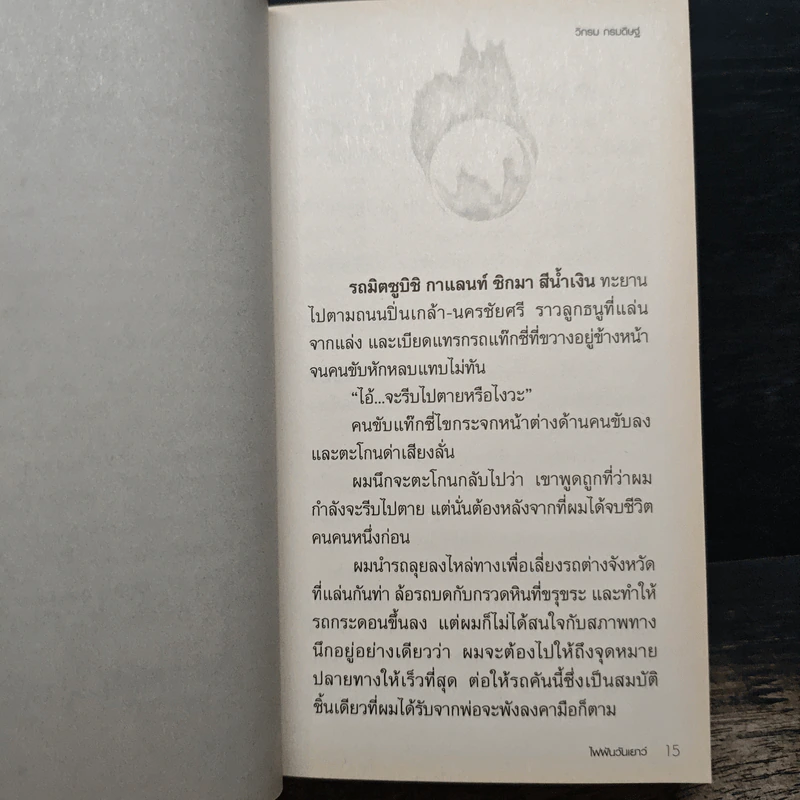 วิกรม กรมดิษฐ์
รถมิตซูบิชิ กาแลนท์ ซิกมา สีน้ำเงิน ทะยาน
ไปตามถนนปิ่นเกล้า-นครชัยศรี ราวลูกธนูที่แล่น
จากแล่ง และเบียดแทรกรถแท๊กซี่ที่ขวางอยู่ข้างหน้า
จนคนขับหักหลบแทบไม่ทัน
“ไอ้...จะรีบไปตายหรือไงวะ”
คนขับแท๊กซี่ไขกระจกหน้าต่างด้านคนขับลง
และตะโกนด่าเสียงลั่น
ผมนึกจะตะโกนกลับไปว่า เขาพูดถูกที่ว่าผม
กำลังจะรีบไปตาย แต่นั่นต้องหลังจากที่ผมได้จบชีวิต
คนคนหนึ่งก่อน
ผมนำรถลุยลงไหล่ทางเพื่อเลี่ยงรถต่างจังหวัด
ที่แล่นกันท่า ล้อรถบดกับกรวดหินที่ขรุขระ และทำให้
รถกระดอนขึ้นลง แต่ผมก็ไม่ได้สนใจกับสภาพทาง
นึกอยู่อย่างเดียวว่า ผมจะต้องไปให้ถึงจุดหมาย
ปลายทางให้เร็วที่สุด ต่อให้รถคันนี้ซึ่งเป็นสมบัติ
ชิ้นเดียวที่ผมได้รับจากพ่อจะพังลงคามือก็ตาม
ไฟฝันวันเยาว์ 15